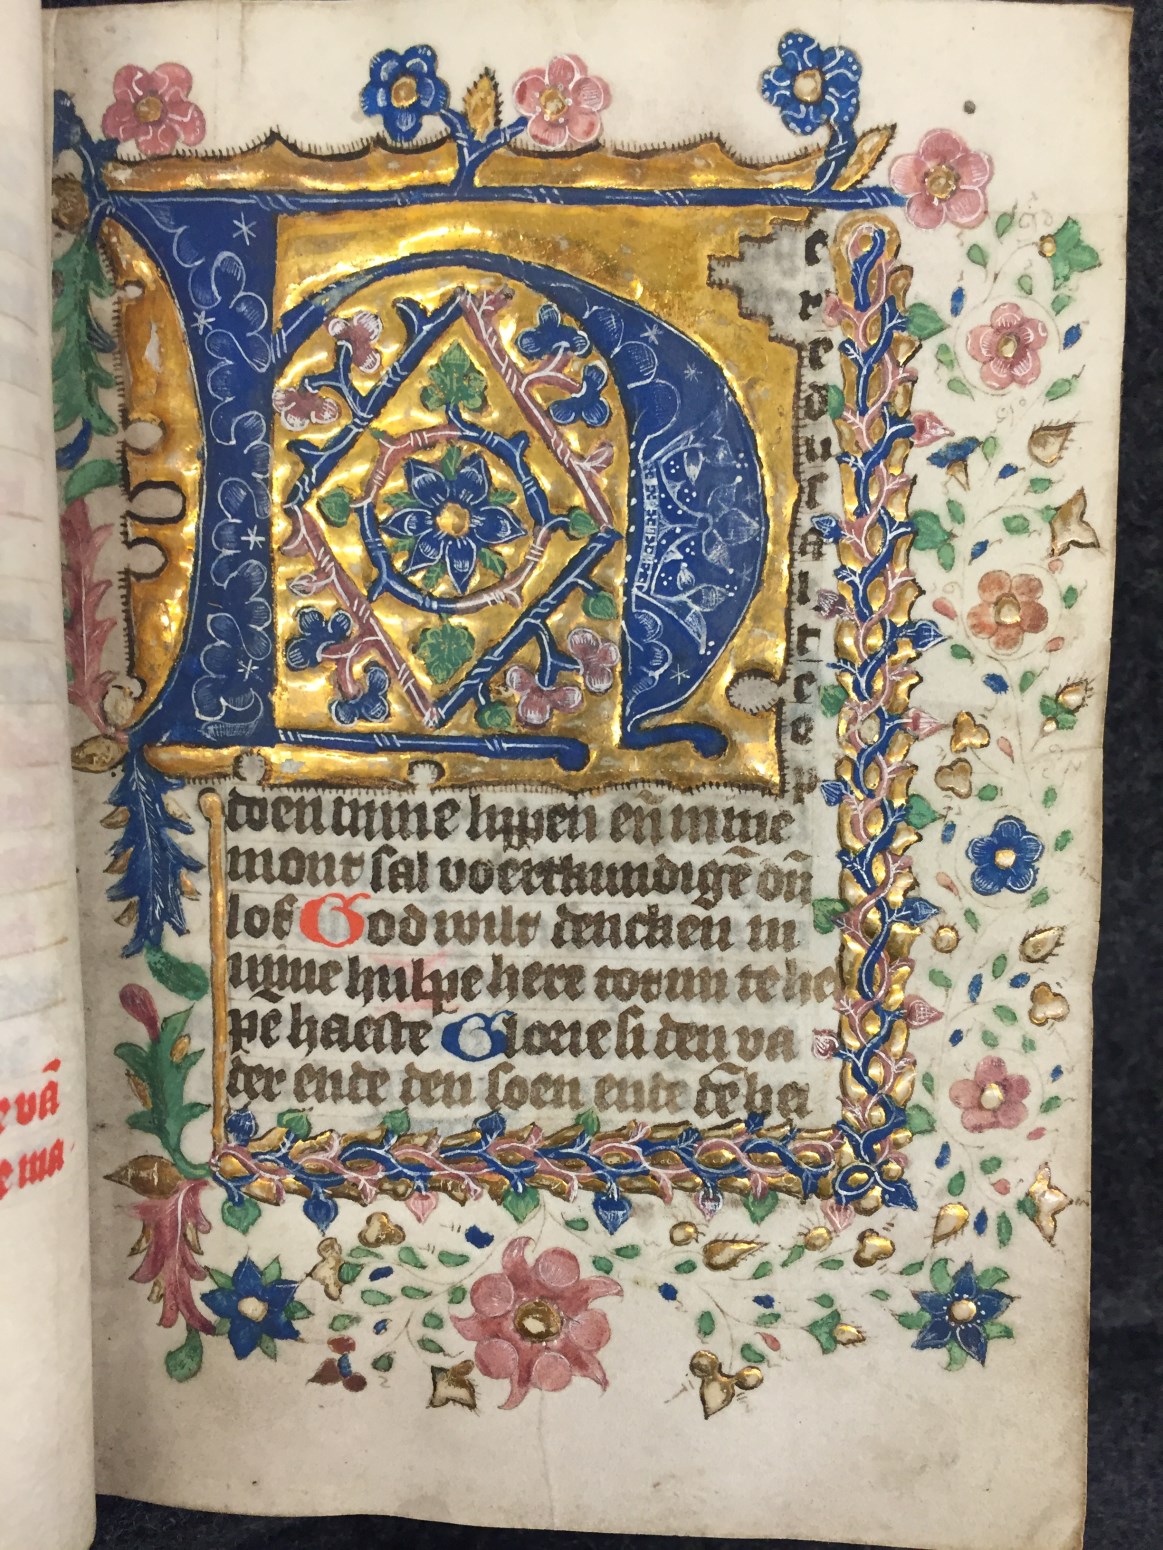 e vā
e ma
H
ere du salte op
doen mine lippen en̄ mine
mont sal voertkundigē din̄
lof God wilt dencken in
mijne hulpe here tot mi te hel
pe haeste Glorie si den va
der ende den soen ende dē hei